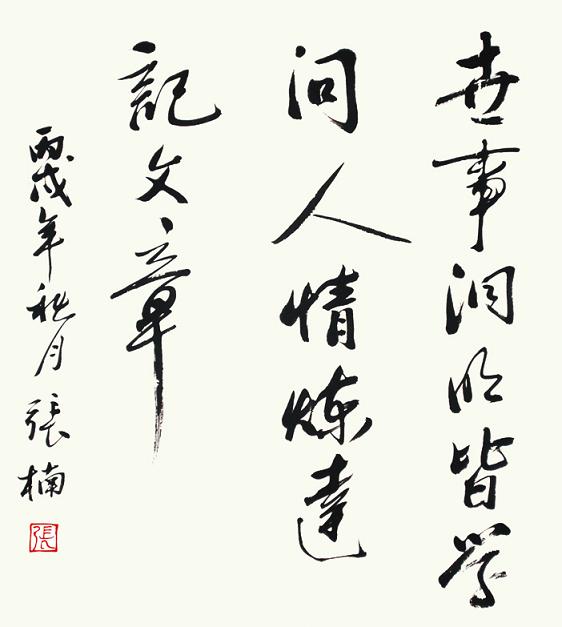 世事洞明皆学
问人情炼達
記文章
丙戌年秋月張楠
張